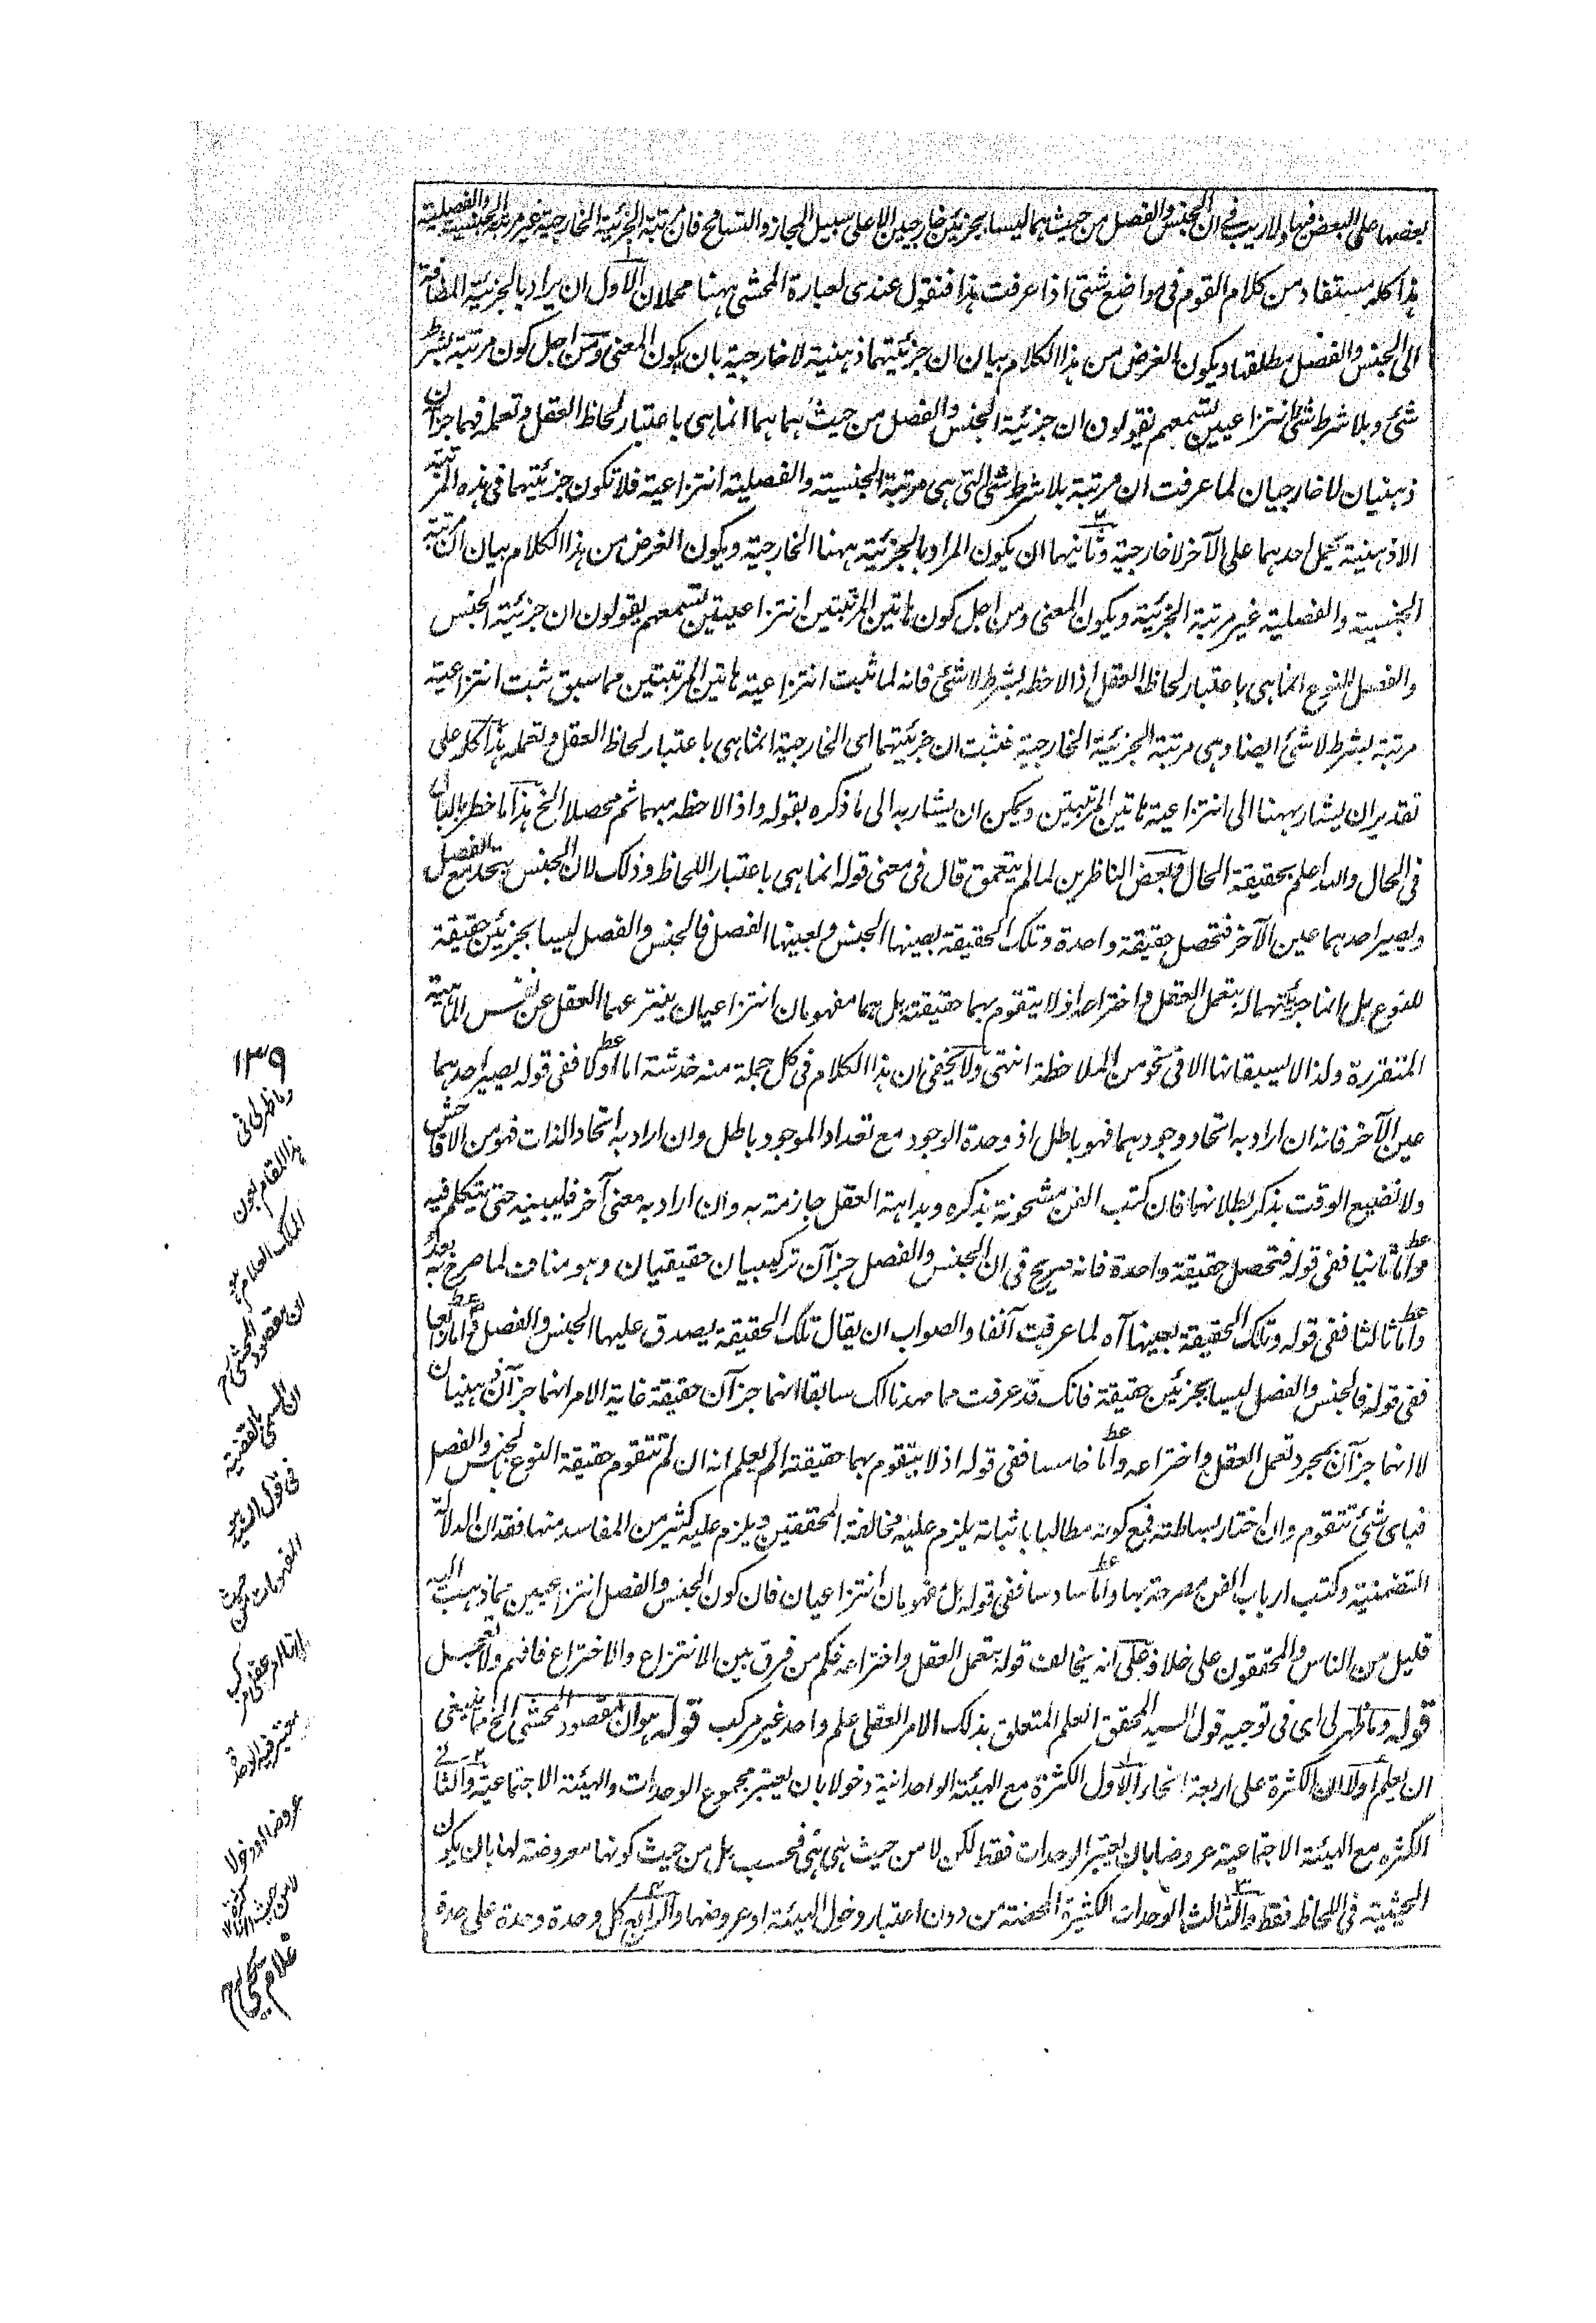 بعضها على البعض فيها ولا ريب فى ان الجنس والفصل من حيث هما ليسا بجزئين خارجيين الا على سبيل المجاز والتسامح فان مرتبة الجزئية الخارجية غير مرتبة الجنسية والفصلية
هذا كله مستفاد من كلام القوم فى مواضع شتى اذا عرفت هذا فنقول عندى لعبارة المحشى ههنا محملان الاول ان يراد بالجزئية المضافة
الى الجنس والفصل مطلقها ويكون الغرض من هذا الكلام بيان ان جزئيتهما ذهنية لا خارجية بان يكون المعنى ومن اجل كون مرتبة بشرط
شئ وبلا شرط شئ انتزاعيين تسمعهم يقولون ان جزئية الجنس والفصل من حيث هما هما انما هى باعتبار لحاظ العقل وتعمله فهما جزآن
ذهنيان لا خارجيان لما عرفت ان مرتبة بلا شرط شئ التى هى مرتبة الجنسية والفصلية انتزاعية فلا تكون جزئيتهما فى هذه المرتبة
الا ذهنية بحمل احدهما على الآخر لا خارجية وثانيهما ان يكون المراد بالجزئية ههنا الخارجية ويكون الغرض من هذا الكلام بيان ان مرتبة
الجنسية والفصلية غير مرتبة الجزئية ويكون المعنى ومن اجل كون هاتين المرتبتين انتزاعيتين تسمعهم يقولون ان جزئية الجنس
والفصل للنوع انما هى باعتبار لحاظ العقل اذا لاحظه بشرط لا شئ فانه لما ثبت انتزاعية هاتين المرتبتين مما سبق ثبت انتزاعية
مرتبة بشرط لا شئ ايضا وهى مرتبة الجزئية الخارجية فثبت ان جزئيتهما اى الخارجية انما هى باعتبار لحاظ العقل وتعمله هذا كله على
تقدير ان يشار بههنا الى انتزاعية هاتين المرتبتين ويمكن ان يشار به الى ما ذكره بقوله واذا لاحظه مبهما ثم محصلا الخ هذا ما خطر بالبال
فى الحال والله اعلم بحقيقة الحال وبعض الناظرين لما لم يتعمق قال فى معنى قوله انما هى باعتبار اللحاظ وذلك لان الجنس يتحد مع الفصل
ويصير احدهما عين الآخر فتحصل حقيقة واحدة وتلك الحقيقة بعينها الجنس وبعينها الفصل فالجنس والفصل ليسا بجزئين حقيقة
للنوع بل انما جزئيتهما له بتعمل العقل واختراعه اذ لا يتقوم بهما حقيقته بل هما مفهومان انتزاعيان ينتزعهما العقل عن نفس الماهية
المتقررة ولذا لا يسبقانها الا فى نحو من الملاحظة انتهى ولا يخفى ان هذا الكلام فى كل جملة منه خدشة اما اولا ففى قوله يصير احدهما
عين الآخر فانه ان اراد به اتحاد وجودهما فهو باطل اذ وحدة الوجود مع تعداد الموجود باطل وان اراد به اتحاد الذات فهو من الافاحش
ولا نضيع الوقت بذكر بطلانهما فان كتب الفن مشحونة بذكره وبداهة العقل جازمة به وان اراد به معنى آخر فليبينه حتى يتكلم فيه
واما ثانيا ففى قوله فتحصل حقيقة واحدة فانه صريح فى ان الجنس والفصل جزآن تركيبيان حقيقيان وهو مناف لما صرح به بعده
واما ثالثا ففى قوله وتلك الحقيقة بعينها آه لما عرفت آنفا والصواب ان يقال تلك الحقيقة يصدق عليها الجنس والفصل واما رابعا
ففى قوله فالجنس والفصل ليسا بجزئين حقيقة فانك قد عرفت مما مهدنا لك سابقا انهما جزآن حقيقة غاية الامر انهما جزآن ذهنيان
لا انهما جزآن بمجرد تعمل العقل واختراعه واما خامسا ففى قوله اذ لا يتقوم بهما حقيقته الم يعلم انه ان لم تتقوم حقيقة النوع بالجنس والفصل
فباى شئ تتقوم وان اختار بساطته فمع كونه مطالبا باثباته يلزم عليه مخالفة المحققين ويلزم عليه كثير من المفاسد منها فقدان الدلالة
التضمنية وكتب ارباب الفن مصرحة بها واما سادسا ففى قوله بل مفهومان انتزاعيان فان كون الجنس والفصل انتزاعيين مما ذهب اليه
قليل من الناس والمحققون على خلافه على انه يخالف قوله بتعمل العقل واختراعه فكم من فرق بين الانتزاع والاختراع فافهم ولا تعجل
قوله وما ظهر لى اى فى توجيه قول السيد المحقق العلم المتعلق بذلك الامر العقلى علم واحد غير مركب قوله هو ان مقصود المحشى الخ مما ينبغى
ان يعلم اولا ان الكثرة على اربعة انحاء الاول الكثرة مع الهيئة الواحدانية دخولا بان يعتبر مجموع الوحدات والهيئة الاجتماعية والثانى
الكثرة مع الهيئة الاجتماعية عروضا بان يعتبر الوحدات فقط لكن لا من حيث هى هى فحسب بل من حيث كونها معروضة لها بان يكون
الحيثية فى اللحاظ فقط والثالث الوحدات الكثيرة المحضة من دون اعتبار دخول الهيئة او عروضها والرابع كل وحدة وحدة على حدة
١٣٩
وما ظهر لى فى
هذا المقام بعون
الملك العلام هو
ان مقصود المحشى
ان المسمى بالقضية
فى قول السيد هو
المفهومات من حيث
انها امر عقلى مركب
معتبر فيه الوحدة
عروضا او دخولا
لا من حيث
غلام يحيى